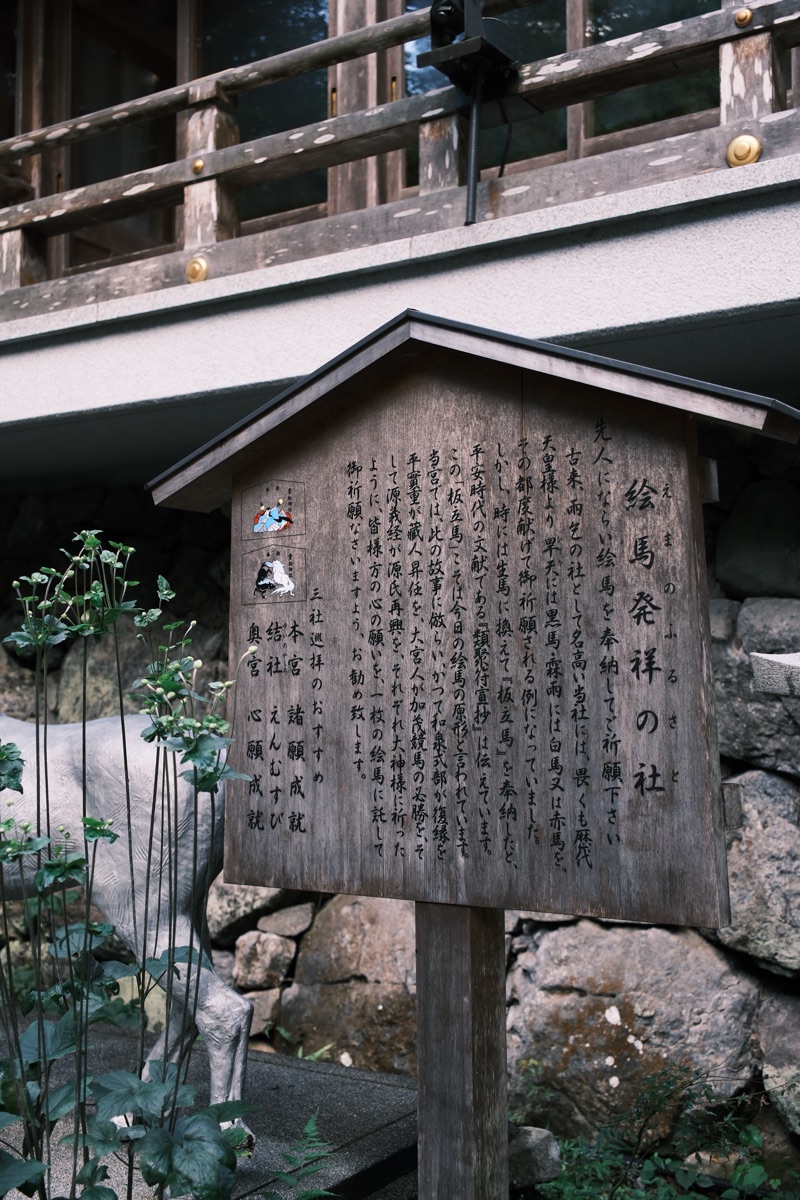 えまのふるさと
絵馬発祥の社
先人にならい絵馬を奉納してご祈願下さい
古来、雨乞の社として名高い当社には、畏くも歴代
天皇様より、旱天には黒馬・霖雨には白馬又は赤馬を、
その都度献げて御祈願される例になっていました。
しかし、時には生馬に換えて『板立馬』を奉納したと、
平安時代の文献である『類聚符宣抄』は伝えています。
この「板立馬」こそは今日の絵馬の原形と言われています。
当宮では、此の故事に倣らい、かつて和泉式部が復縁を
平實重が蔵人昇任を、大宮人が加茂競馬の必勝を、そ
して源義経が源氏再興を、それぞれ大神様に祈った
ように、皆様方の心の願いを、一枚の絵馬に託して
御祈願なさいますよう、お勧め致します。
三社巡拝のおすすめ
本宮 諸願成就
結社 えんむすび
奥宮 心願成就